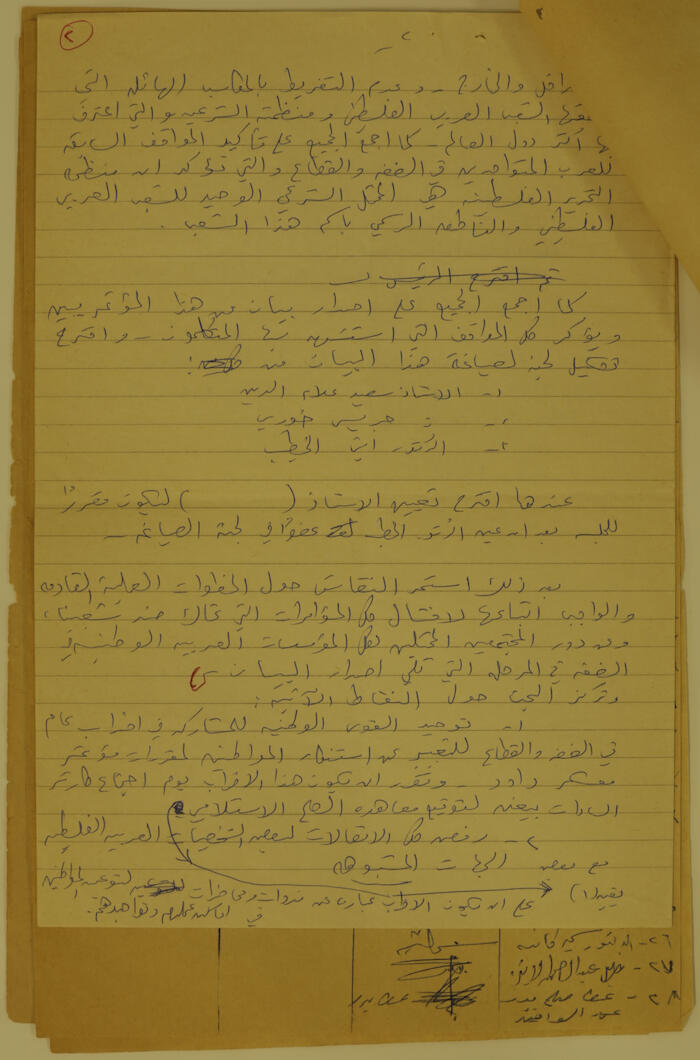 ٢
- ٢ -
والخارج - وعدم التفريط بالمكاسب الهائلة التي
الشعب العربي الفلسطيني ومنظمته الشرعية والتي اعترفت
بها أكثر دول العالم - كما اجمع الجميع على تأكيد المواقف السابقة
للعرب المتواجدين في الضفة والقطاع والتي تؤكد ان منظمة
التحرير الفلسطينية هي الممثل الشرعي الوحيد للشعب العربي
الفلسطيني والناطقة الرسمي باسم هذا الشعب .
ثم اقترح الرئيس
كما اجمع الجميع على اصدار بيان من هذا المؤتمر يبين
ويؤكد كل المواقف التي استشهد بها المتكلمون - واقترح
تشكيل لجنة لصياغة هذا البيان من :
١- الاستاذ سعيد علاء الدين
٢- : جريس خوري
٣- الدكتور امين الخطيب
عندها اقترح تعيين الاستاذ ( ) ليكون مقررا
للجلسة بعد ان عين الدكتور الخطيب عضوا في لجنة الصياغة -
بعد ذلك استمر النقاش حول الخطوات العملية القادمة
والواجب اتباعها لافشال كل المؤامرات التي تحاك ضد شعبنا،
وعن دور المجتمعين الممثلين لكل المؤسسات العربية الوطنية في
الضفة في المرحلة التي تلي اصدار البيان
وتركز البحث حول النقاط الآتية :
١- توحيد القوى الوطنية للمشاركة في اضراب عام
في الضفة والقطاع للتعبير عن استنكار المواطنين لمقررات مؤتمر
معسكر داود - وتقرر ان يكون هذا الاضراب يوم اجتماع كارتر
السادات بيغن لتوقيع معاهدة الصلح الاستسلامي
٢- رفض كل الاتصالات لبعض الشخصيات العربية الفلسطينية
مع بعض الجهات المشبوهة
(١) على ان يكون الاضراب عبارة عن ندوات ومحاضرات لتوعية المواطنين
في اماكن عملهم وتواجدهم .
٢٦- الدكتور
٢٧- عبد
٢٨-